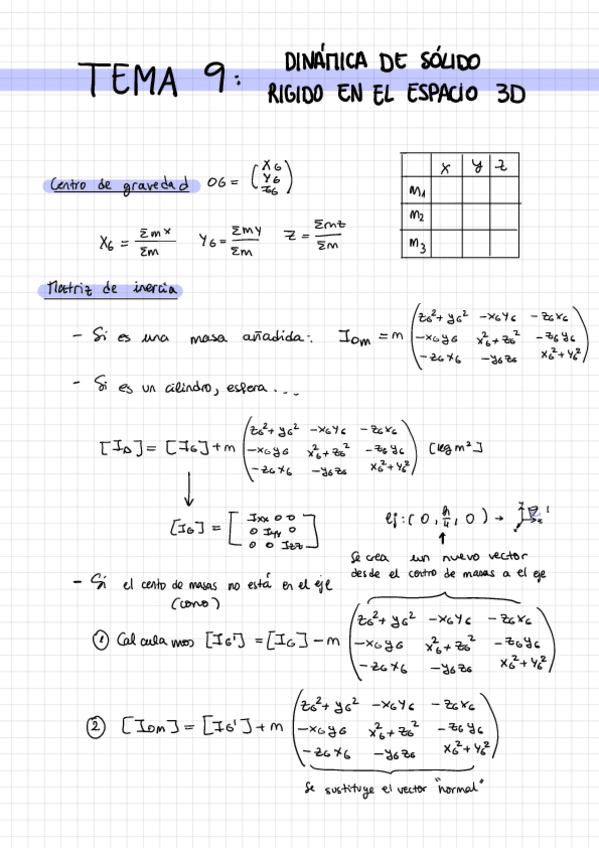 TEMA 9: DINÁMICA DE SÓLIDO
RIGIDO EN EL ESPACIO 3D
Centro de gravedad OG = (XG YG ZG)
x y z
m1
m2
m3
XG = Σmx/Σm YG = Σmy/Σm Z = Σmz/Σm
Matriz de inercia
- Si es una masa añadida: Iom = m
zG²+yG² -xGyG -zGxG
-xGyG xG²+zG² -zGyG
-zGxG -yGzG xG²+yG²
- Si es un cilindro, esfera...
[Io] = [IG] + m
zG²+yG² -xGyG -zGxG
-xGyG xG²+zG² -zGyG
-zGxG -yGzG xG²+yG²
[kg m²]
[IG] =
Ixx 0 0
0 Iyy 0
0 0 Izz
ej: (0, h/4, 0) →
Se crea un nuevo vector
desde el centro de masas a el eje
- Si el cento de masas no está en el eje
(cono)
① Calculamos [IG'] = [IG] - m
zG²+yG² -xGyG -zGxG
-xGyG xG²+zG² -zGyG
-zGxG -yGzG xG²+yG²
② [Iom] = [IG'] + m
zG²+yG² -xGyG -zGxG
-xGyG xG²+zG² -zGyG
-zGxG -yGzG xG²+yG²
Se sustituye el vector "normal"